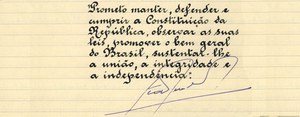 Prometo manter, defender e
cumprir a Constituição da
República, observar as suas
leis, promover o bem geral
do Brasil, sustentar-lhe
a união, a integridade e
a independência: